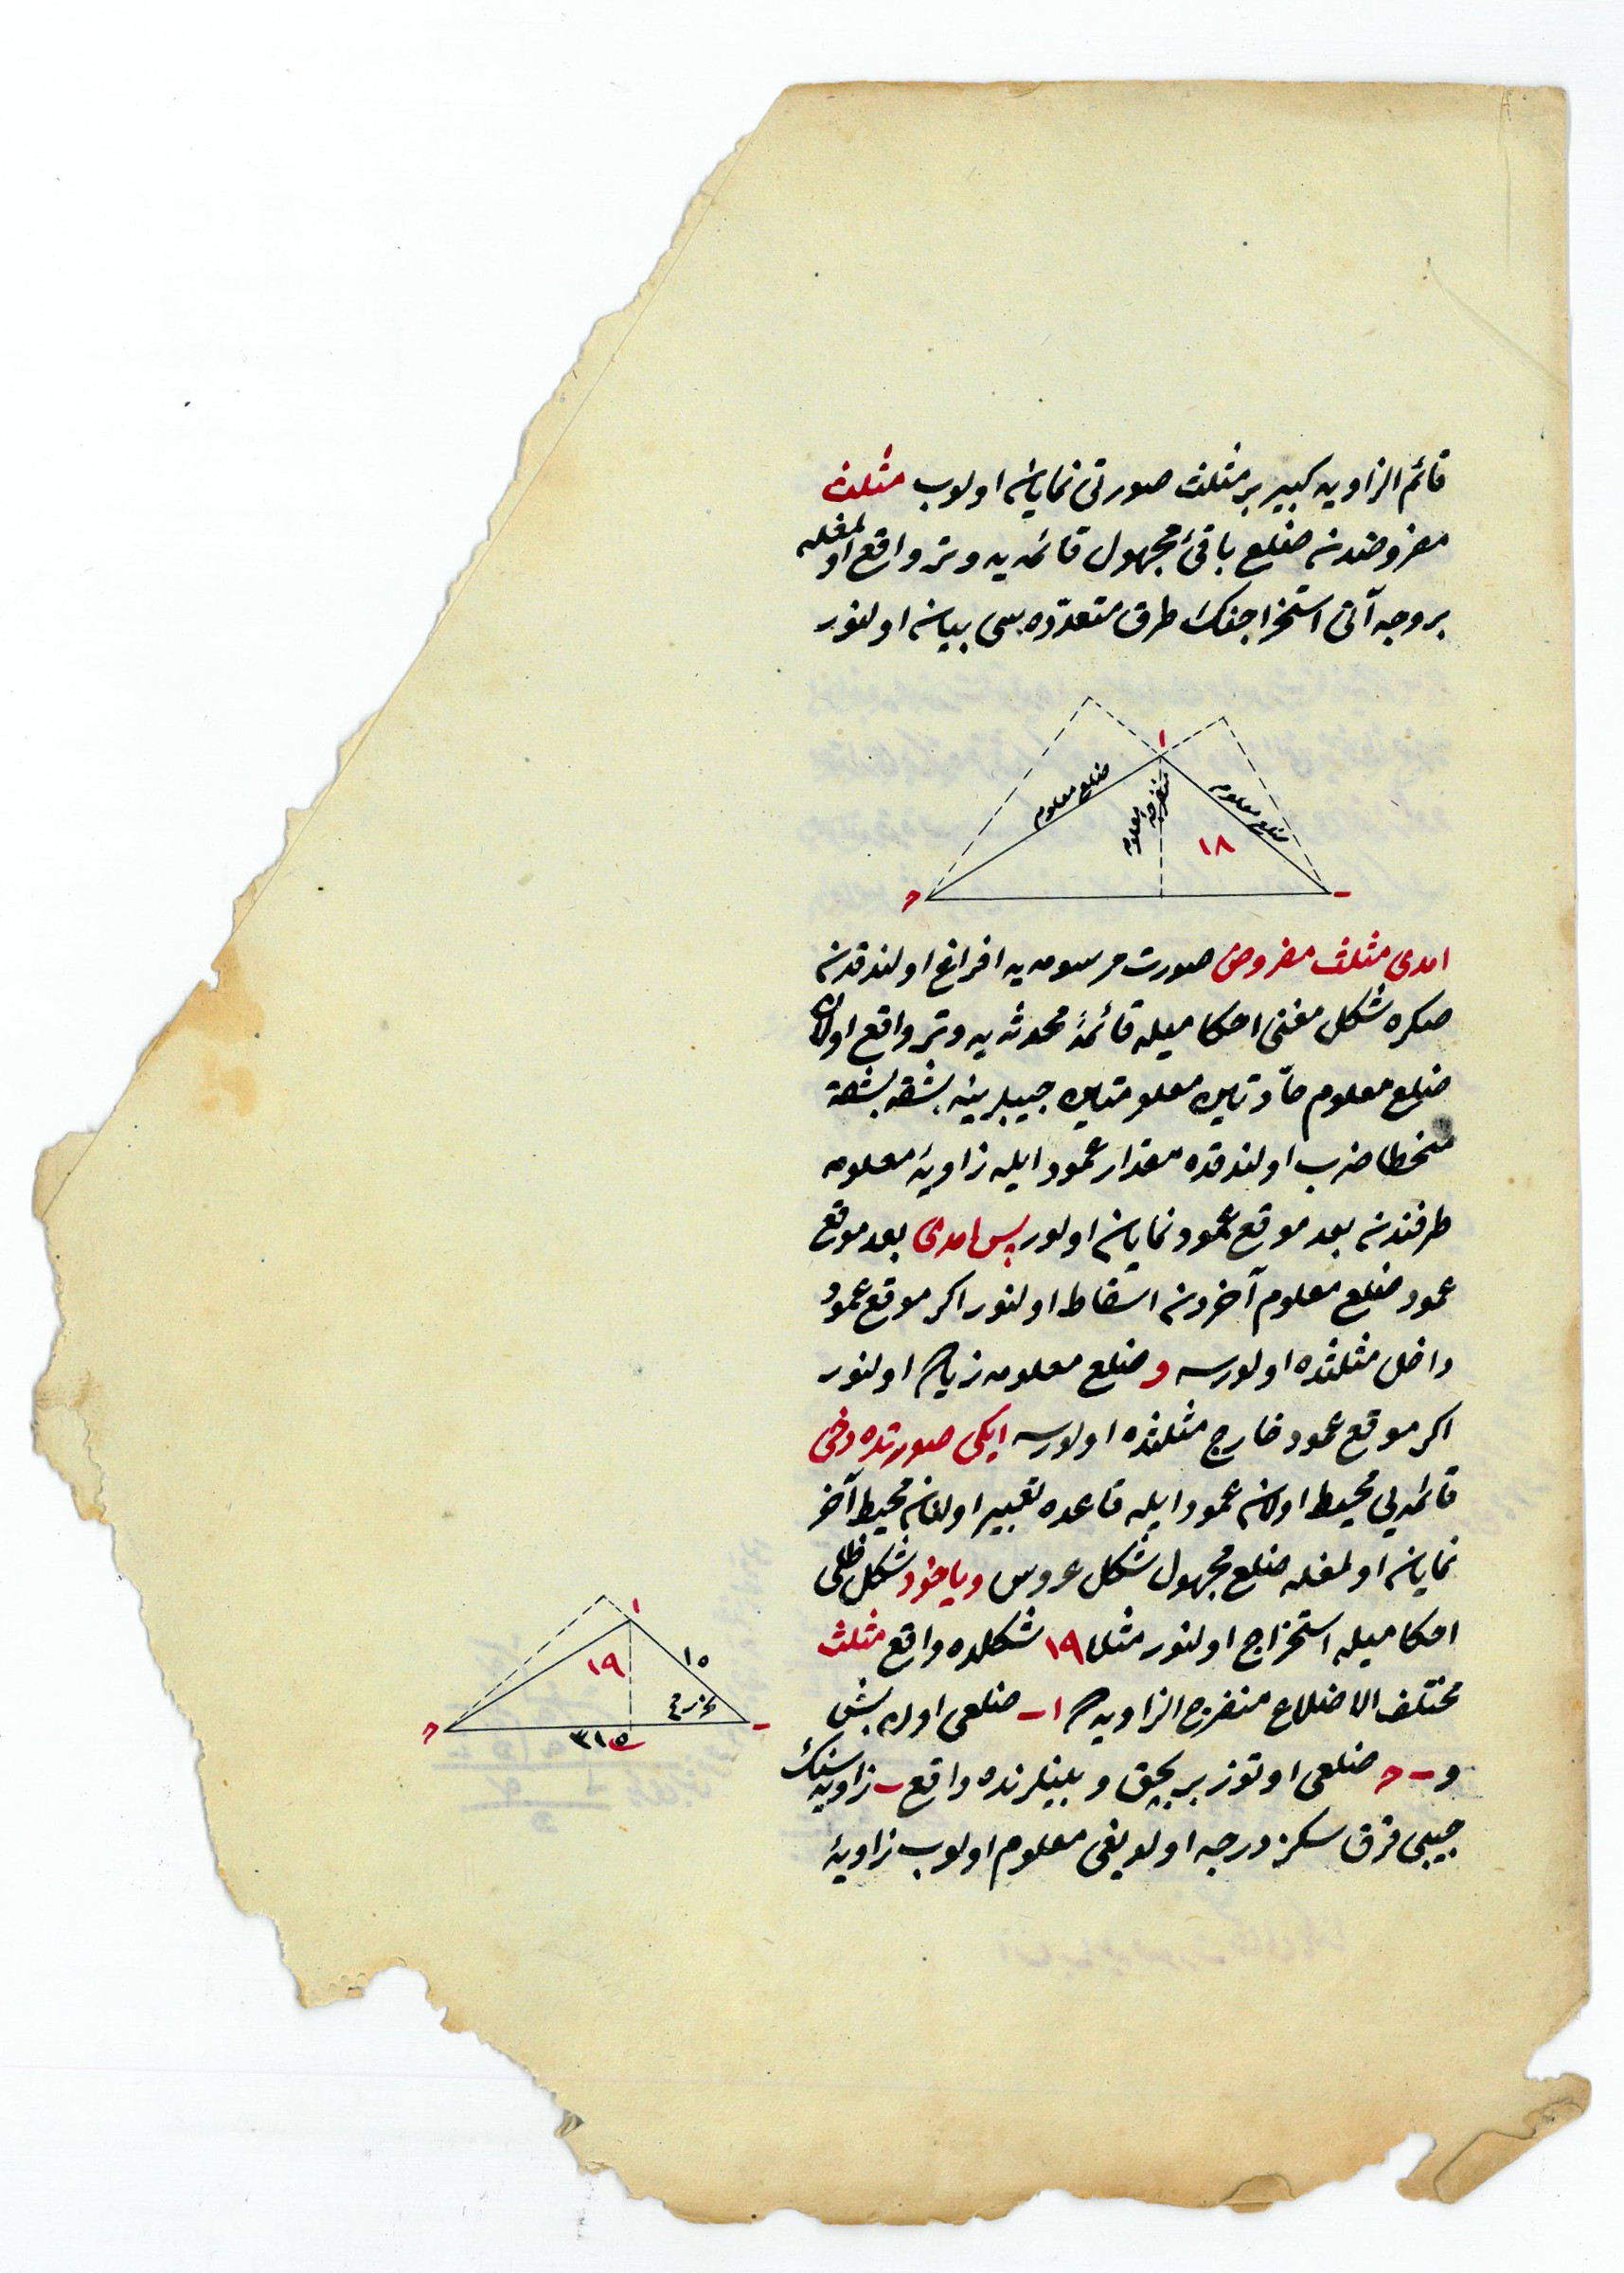 قائم الزاویه کبیر بر مثلث صورتی نمایان اولوب مثلث
مفروضدن ضلع باقئ مجهول قائمه‌یه وتر واقع اولمغله
بر وجه آتی استخراجنک طرق متعدّده‌سی بیان اولنور
ا
ضلع معلوم
ضلع معلوم
منفرجه
معلومه
١٨
ح
ب
امدی مثلث مفروض صورت مرسومه‌یه افراغ اولندقدن
صکره شکل مغنی احکامیله قائمهٔ محدثه‌یه وتر واقع اولان
ضلع معلوم حادّتاین معلومتاین جیبلرینه بشقه بشقه
منحطا ضرب اولندقده مقدار عمود ایله زاویهٔ معلومه
طرفندن بعد موقع عمود نمایان اولور پس امدی بعد موقع
عمود ضلع معلوم آخردن اسقاط اولنور اکر موقع عمود
داخل مثلثده اولورسه و ضلع معلومه زیاده اولنور
اکر موقع عمود خارج مثلثده اولورسه ایکی صورتده دخی
قائمه‌یی محیط اولان عمود ایله قاعده تعبیر اولنان محیط آخر
نمایان اولمغله ضلع مجهول شکل عروس ویاخود شکل ظلی
احکامیله استخراج اولنور مثلا ١٩ شکلده واقع مثلث
مختلف الاضلاع منفرج الزاویه‌ده ا ب ضلعی اون بش
و ب ح ضلعی اوتوز بر بچق و بینلرنده واقع ب زاویه‌سنک
جیبی قرق سکز درجه اولدیغی معلوم اولوب زاویهٔ
ا
١٩
١٥
ح
ب
٣١٥